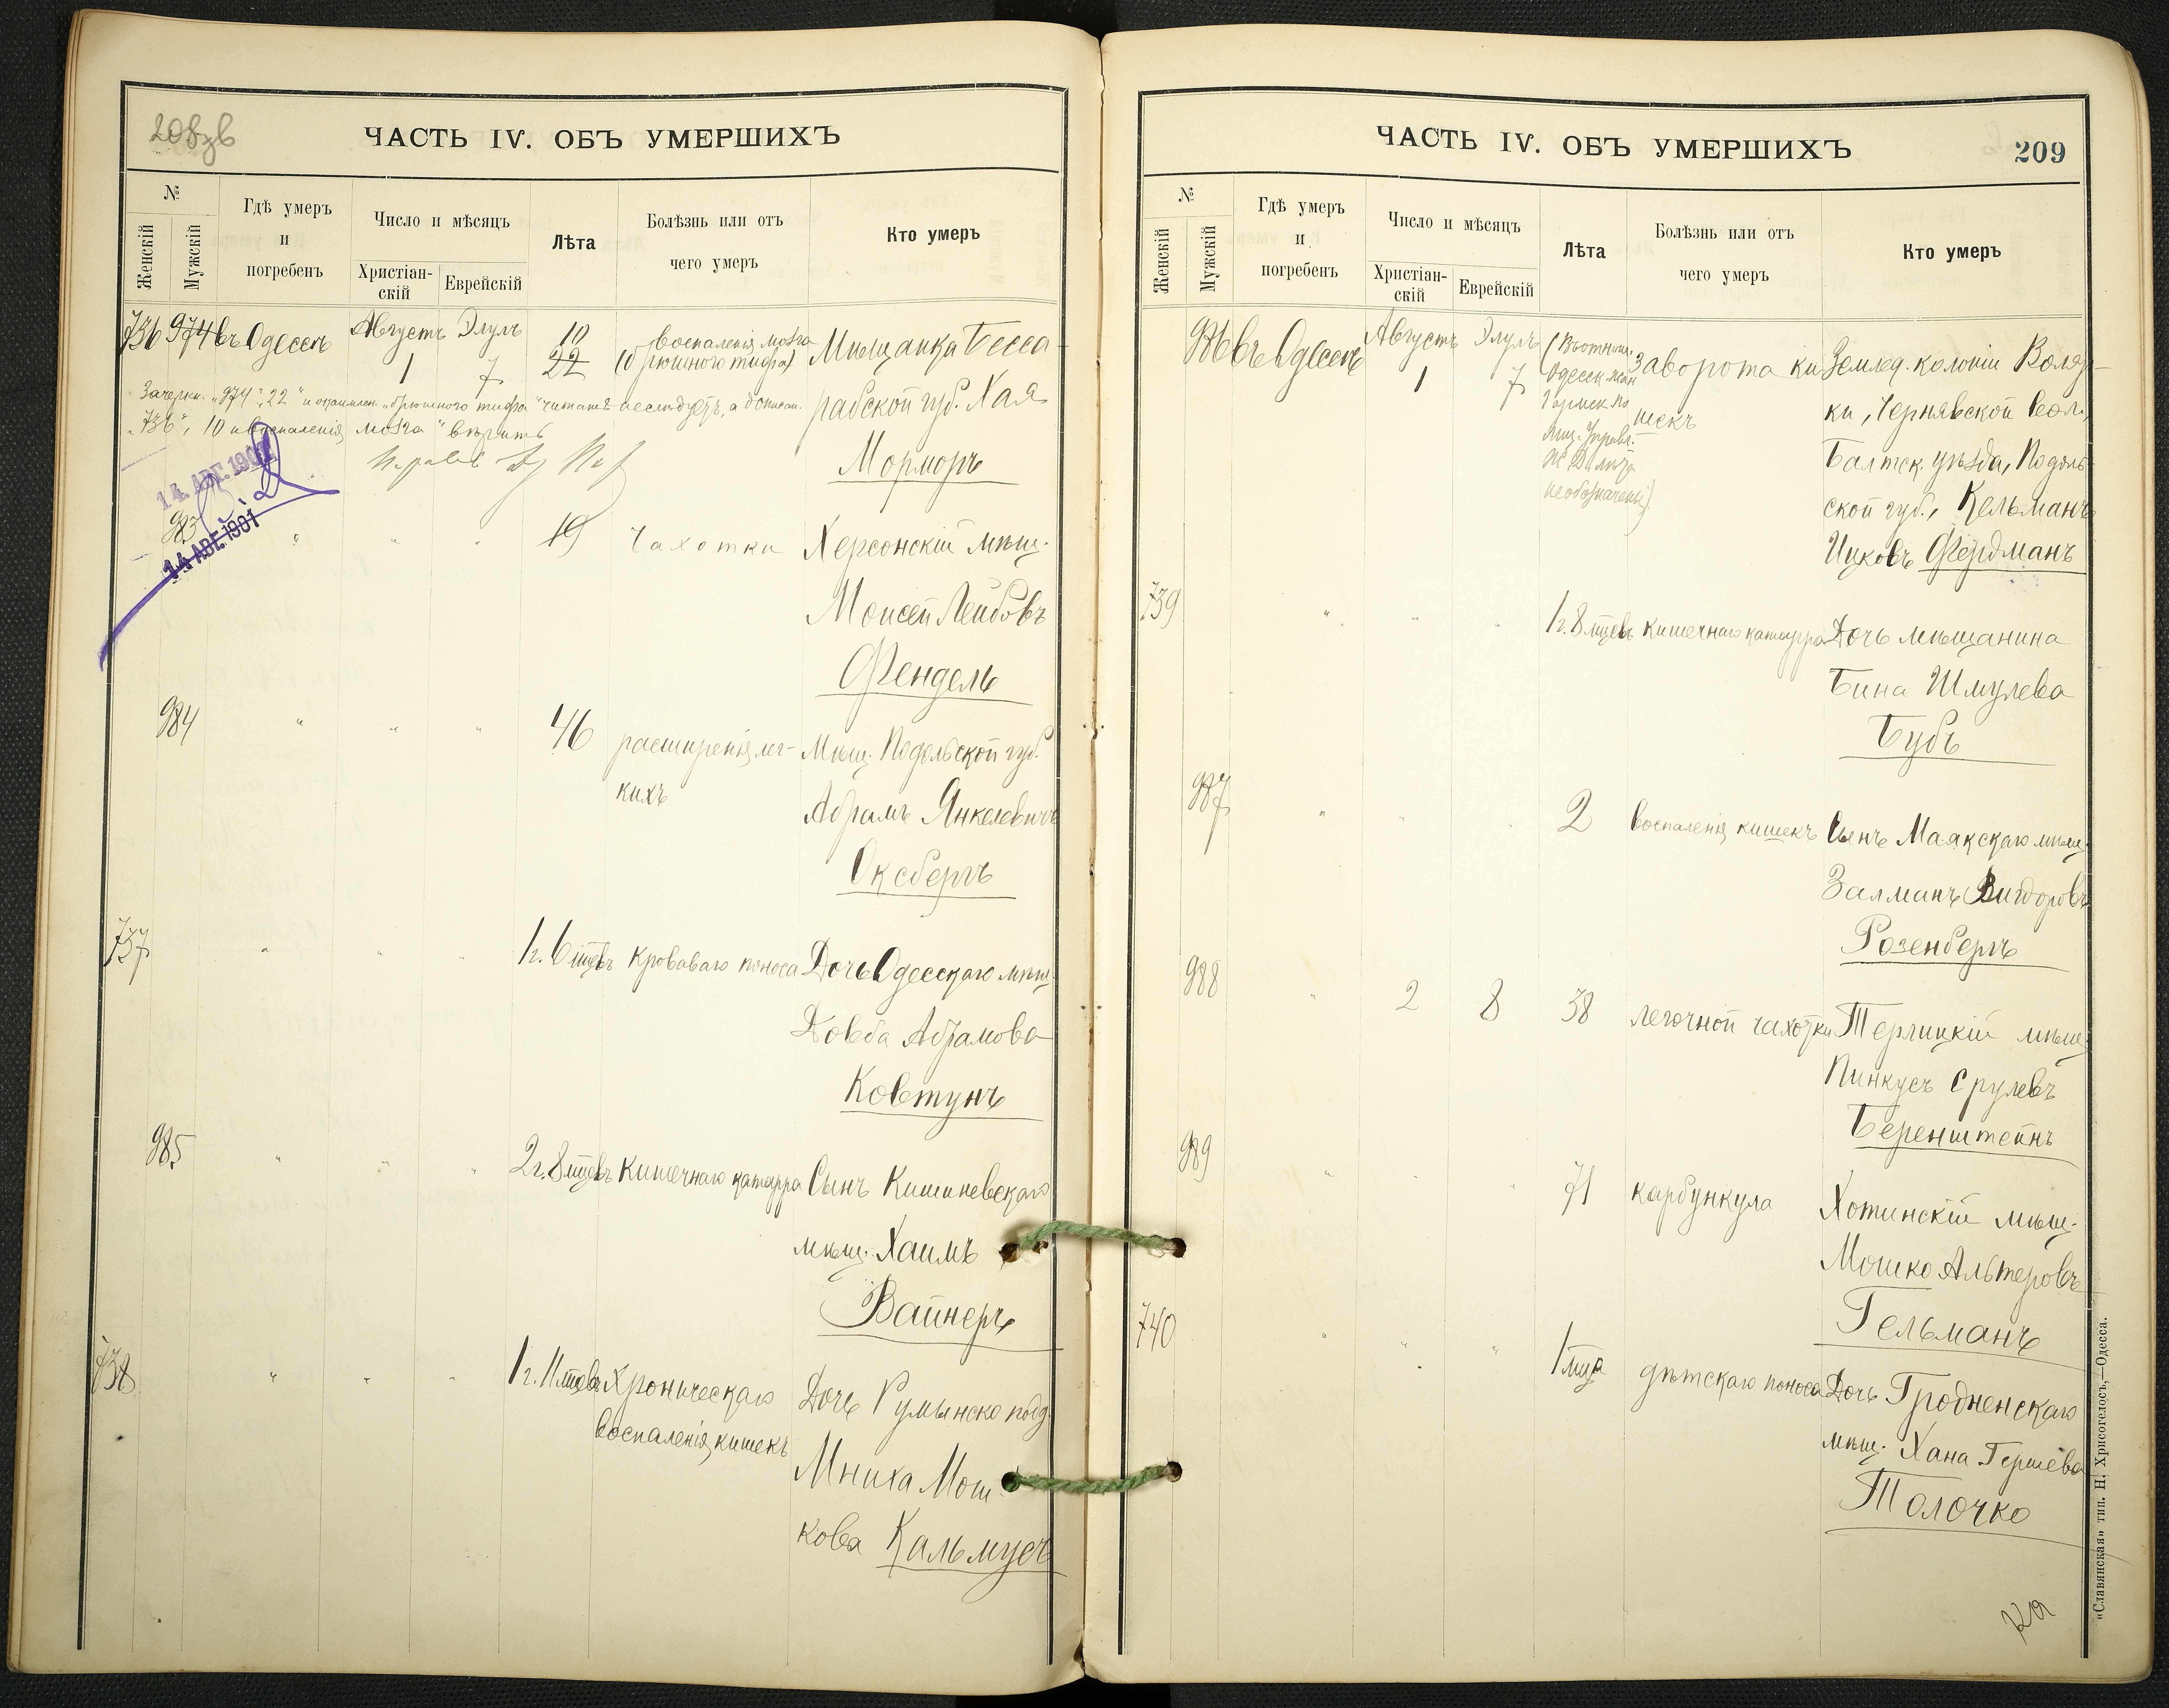 208 об
ЧАСТЬ IV. ОБЪ УМЕРШИХЪ
№
Женскій
Мужскій
Гдѣ умеръ
и
погребенъ
Число и мѣсяцъ
Христіан-
скій
Еврейскій
Лѣта
Болѣзнь или отъ
чего умеръ
Кто умеръ
736 974 въ Одессѣ Августъ Элулъ 10 воспаленія мозга Мѣщанка Бесса-
1 7 22 (брюшного тифа)
Зачеркн. „974", „22" и „брюшного тифа" читать не слѣдуетъ, а рабской губ. Хая
„736", 10 и воспаленія мозга" вѣрить
Морморъ
14. АВГ. 1901
983 " " " 19 Чахотки Херсонскій мѣщ.
14 АВГ. 1901
Моисей Лейбовъ
Фендель
984 " " " 46 расширенія лег- Мѣщ. Подольской губ.
кихъ
Абрамъ Янкелевичъ
Оксбергъ
737 " " " 1 г. 6 мцевъ Кроваваго поноса Дочь Одесскаго мѣщ.
Довба Абрамова
Ковтунъ
985 " " " 2 г. 8 мцевъ Кишечнаго катарра Сынъ Кишиневскаго
мѣщ. Хаимъ
Вайнеръ
738 " " " 1 г. 11 мцевъ Хроническаго Дочь Румынско подд.
воспаленія кишекъ
Мниха Мош-
кова Кальмусъ
ЧАСТЬ IV. ОБЪ УМЕРШИХЪ
209
№
Женскій
Мужскій
Гдѣ умеръ
и
погребенъ
Число и мѣсяцъ
Христіан-
скій
Еврейскій
Лѣта
Болѣзнь или отъ
чего умеръ
Кто умеръ
986 въ Одессѣ Августъ Элулъ Заворота ки- Землед. колоніи Воляр-
1 7 шекъ
ки, Чернявской вол.,
Балтск. уѣзда, Подоль-
лѣта
необозначены)
ской губ., Кельманъ
Ицковъ Фердманъ
739 " " " 1 г. 8 мцевъ Кишечнаго катарра Дочь мѣщанина
Бина Шмулева
Бубъ
987 " " " 2 воспаленія кишекъ Сынъ Маякскаго мѣщ.
Залманъ Вигдоровъ
Розенбергъ
988 " 2 8 38 легочной чахотки Терлицкій мѣщ.
Пинкусъ Срулевъ
Беренштейнъ
989 " " " 71 карбункула Хотинскій мѣщ.
Мошко Альтеровъ
Гельманъ
740 " " " 1 мца дѣтскаго поноса Дочь Гродненскаго
мѣщ. Хана Гершева
Толочко
«Славянская» тип. Н. Хрисогелосъ,—Одесса.